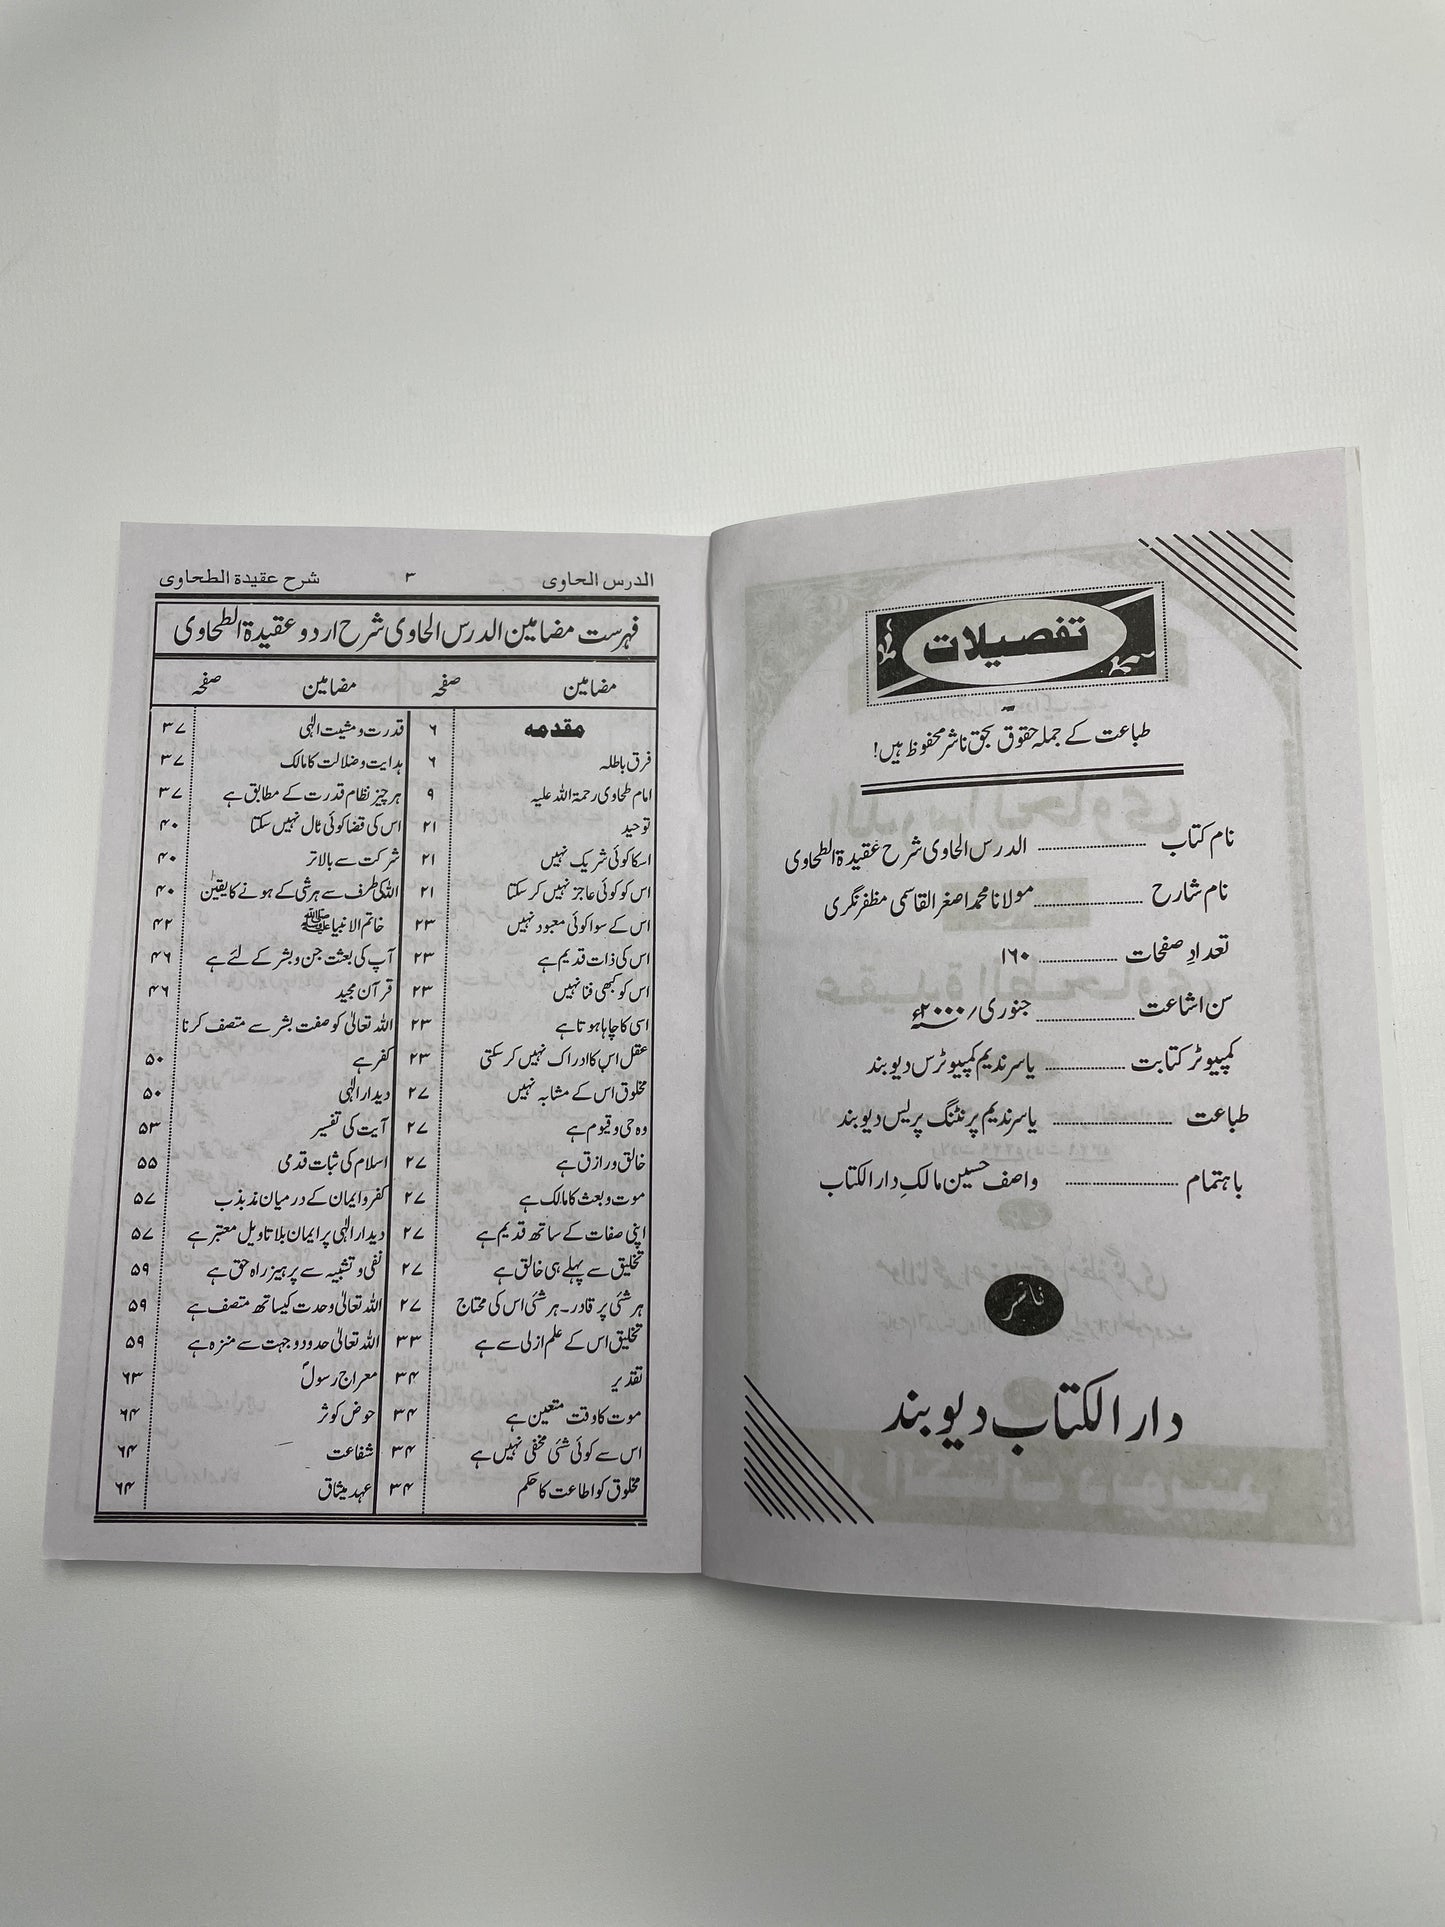 تفصیلات
طباعت کے جملہ حقوق بحق ناشر محفوظ ہیں!
نام کتاب ........ الدرس الحاوی شرح عقیدۃ الطحاوی
نام شارح ........ مولانا محمد اصغر القاسمی مظفر نگری
تعداد صفحات ........ ۱۶۰
سن اشاعت ........ جنوری ؍ ۲۰۰۰ء
کمپیوٹر کتابت ........ یاسر ندیم کمپیوٹرس دیوبند
طباعت ........ یاسر ندیم پرنٹنگ پریس دیوبند
باہتمام ........ واصف حسین مالکِ دارالکتاب
ناشر
دارالکتاب دیوبند
الدرس الحاوی ۳ شرح عقیدة الطحاوی
فہرست مضامین الدرس الحاوی شرح اردو عقیدۃ الطحاوی
مضامین صفحہ مضامین صفحہ
مقدمہ ۶ قدرت و مشیت الٰہی ۳۷
فرق باطلہ ۶ ہدایت و ضلالت کا مالک ۳۷
امام طحاوی رحمۃ اللہ علیہ ۹ ہر چیز نظام قدرت کے مطابق ہے ۳۷
توحید ۲۱ اس کی قضا کوئی ٹال نہیں سکتا ۴۰
اسکا کوئی شریک نہیں ۲۱ شرکت سے بالاتر ۴۰
اس کو کوئی عاجز نہیں کر سکتا ۲۱ اللہ کی طرف سے ہر شی کے ہونے کا یقین ۴۰
اس کے سوا کوئی معبود نہیں ۲۳ خاتم الانبیاء ﷺ ۴۲
اس کی ذات قدیم ہے ۲۳ آپ کی بعثت جن و بشر کے لئے ہے ۴۶
اس کو کبھی فنا نہیں ۲۳ قرآن مجید ۴۶
اسی کا چاہا ہوتا ہے ۲۳ اللہ تعالیٰ کو صفت بشر سے متصف کرنا
عقل اس کا ادراک نہیں کر سکتی ۲۳ کفر ہے ۵۰
مخلوق اس کے مشابہ نہیں ۲۷ دیدار الٰہی ۵۰
وہ حی و قیوم ہے ۲۷ آیت کی تفسیر ۵۳
خالق و رازق ہے ۲۷ اسلام کی ثبات قدمی ۵۵
موت و بعث کا مالک ہے ۲۷ کفر و ایمان کے درمیان مذبذب ۵۷
اپنی صفات کے ساتھ قدیم ہے ۲۷ دیدار الٰہی پر ایمان بلا تاویل معتبر ہے ۵۷
تخلیق سے پہلے ہی خالق ہے ۲۷ نفی و تشبیہ سے پرہیز راہ حق ہے ۵۹
ہر شئی پر قادر۔ ہر شئی اس کی محتاج ۲۷ اللہ تعالیٰ وحدت کیساتھ متصف ہے ۵۹
تخلیق اس کے علم ازلی سے ہے ۳۳ اللہ تعالیٰ حدود و جہت سے منزہ ہے ۵۹
تقدیر ۳۴ معراج رسولؐ ۶۳
موت کا وقت متعین ہے ۳۴ حوض کوثر ۶۴
اس سے کوئی شئی مخفی نہیں ہے ۳۴ شفاعت ۶۴
مخلوق کو اطاعت کا حکم ۳۴ عہد میثاق ۶۴